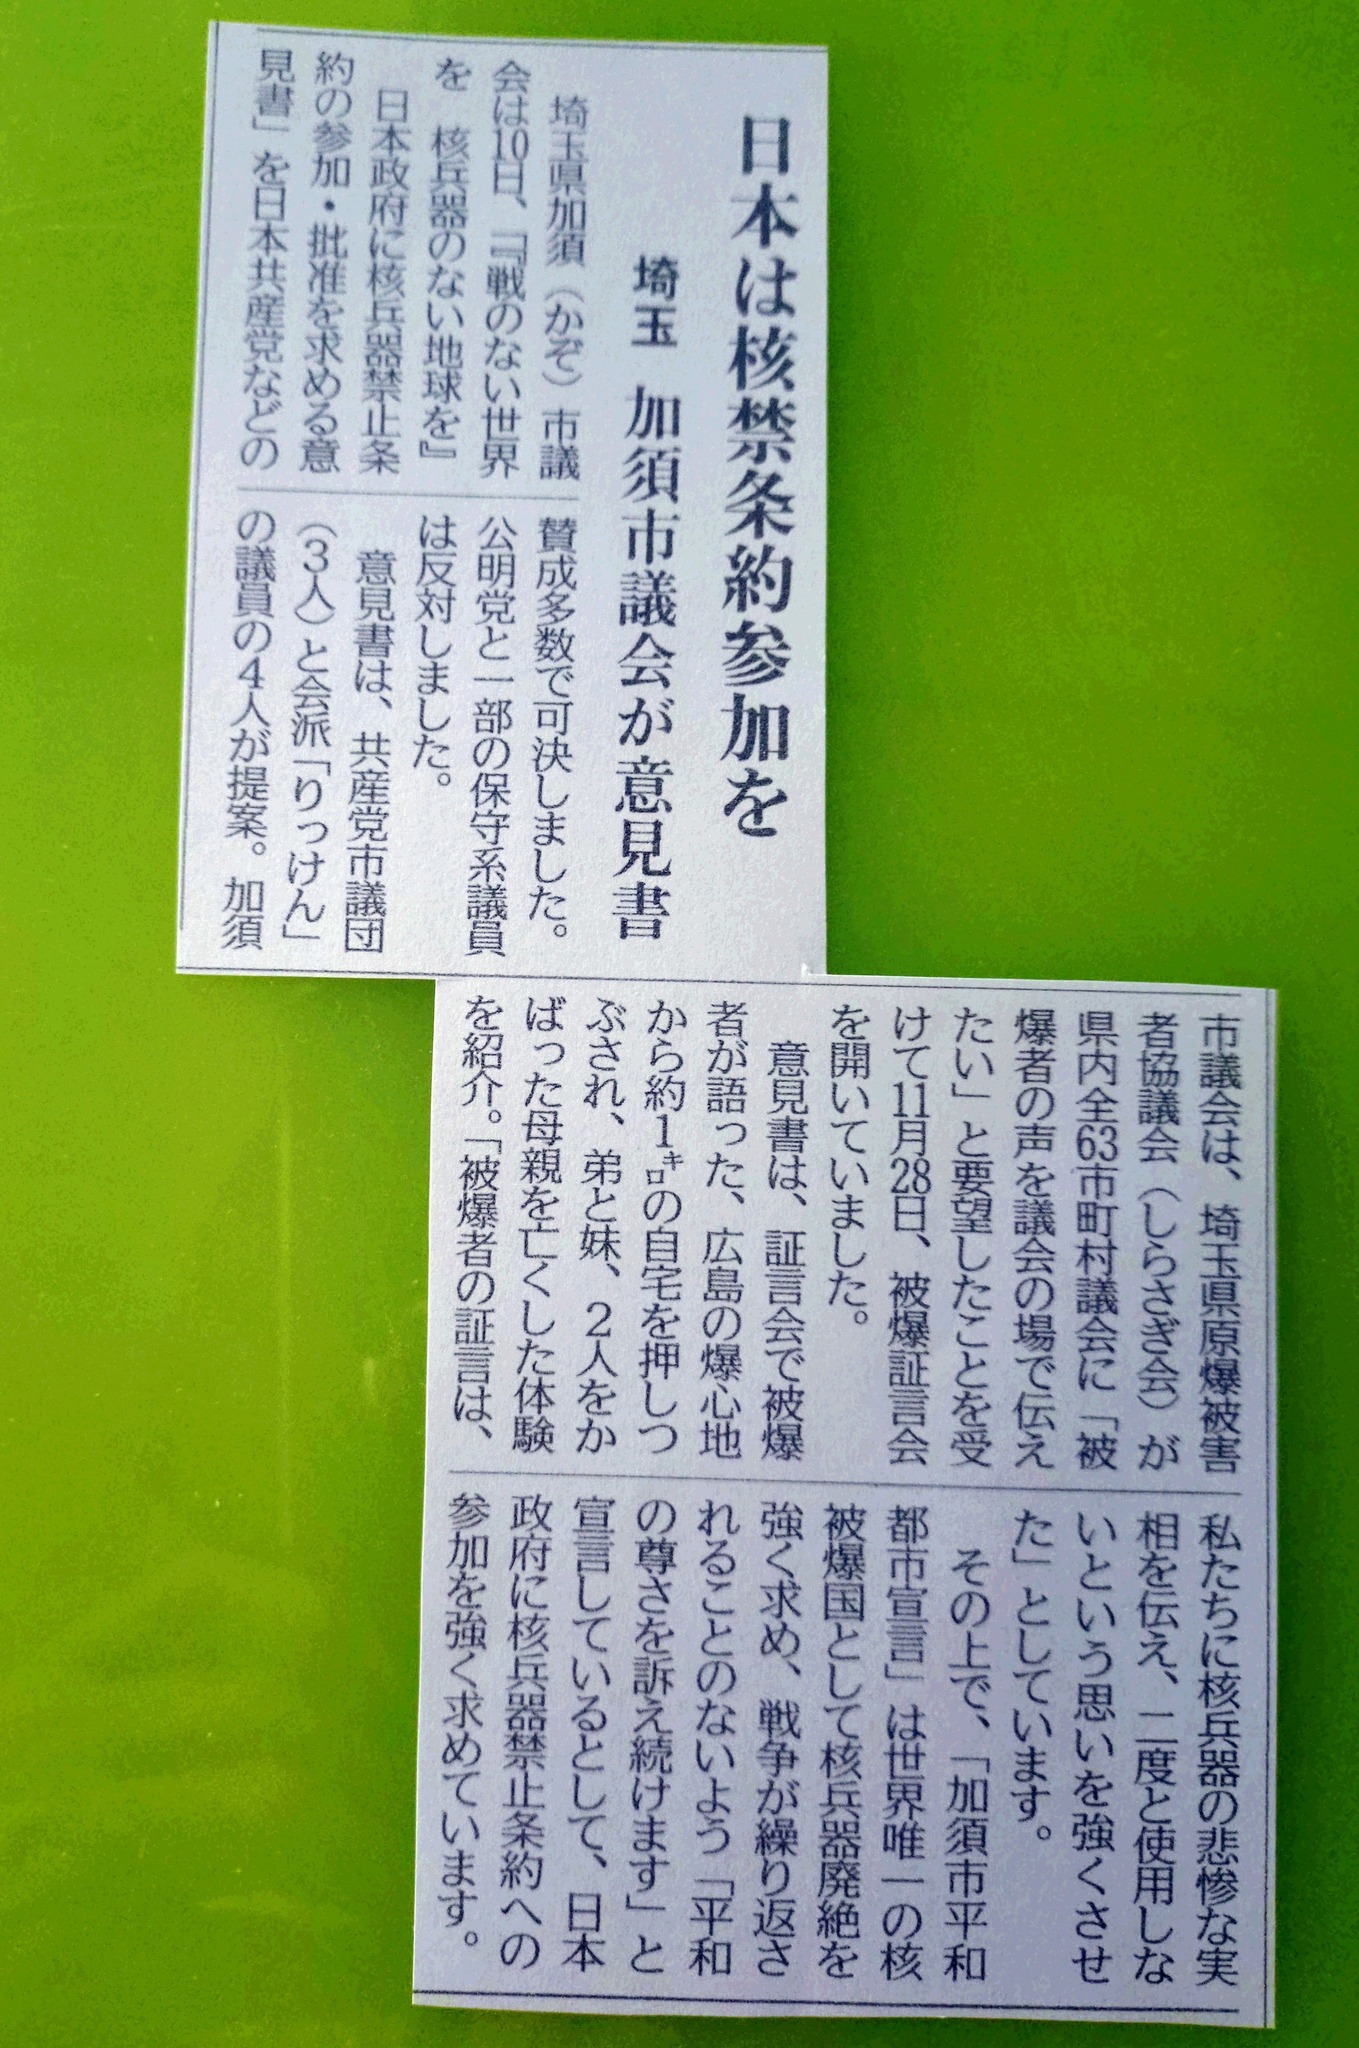 日本は核禁条約参加を
埼玉 加須市議会が意見書
埼玉県加須(かぞ)市議
会は10日、「『戦のない世界
を 核兵器のない地球を』
日本政府に核兵器禁止条
約の参加・批准を求める意
見書」を日本共産党などの
賛成多数で可決しました。
公明党と一部の保守系議員
は反対しました。
意見書は、共産党市議団
(3人)と会派「りっけん」
の議員の4人が提案。加須
市議会は、埼玉県原爆被害
者協議会(しらさぎ会)が
県内全63市町村議会に「被
爆者の声を議会の場で伝え
たい」と要望したことを受
けて11月28日、被爆証言会
を開いていました。
意見書は、証言会で被爆
者が語った、広島の爆心地
から約1キロの自宅を押しつ
ぶされ、弟と妹、2人をか
ばった母親を亡くした体験
を紹介。「被爆者の証言は、
私たちに核兵器の悲惨な実
相を伝え、二度と使用しな
いという思いを強くさせ
た」としています。
その上で、「加須市平和
都市宣言」は世界唯一の核
被爆国として核兵器廃絶を
強く求め、戦争が繰り返さ
れることのないよう「平和
の尊さを訴え続けます」と
宣言しているとして、日本
政府に核兵器禁止条約への
参加を強く求めています。